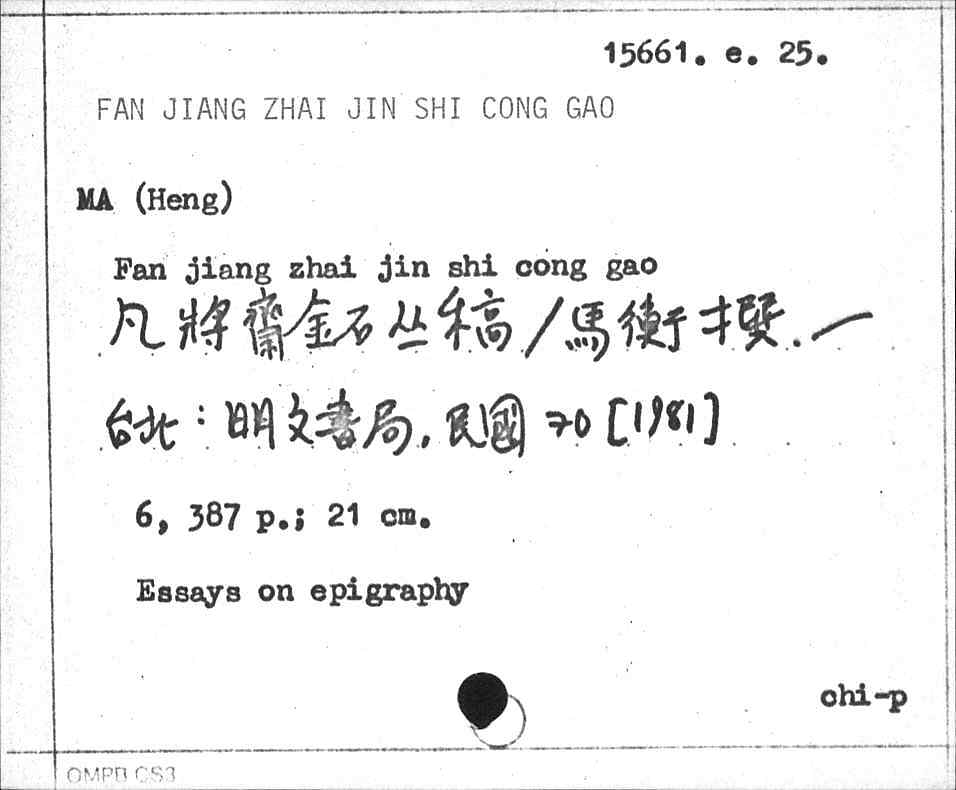 15661. e. 25.
FAN JIANG ZHAI JIN SHI CONG GAO
MA (Heng)
Fan jiang zhai jin shi cong gao
凡將齋金石丛稿/馬衡撰.—
台北:明文書局,民國70[1981]
6, 387 p.; 21 cm.
Essays on epigraphy
chi-p
OMPB CS3